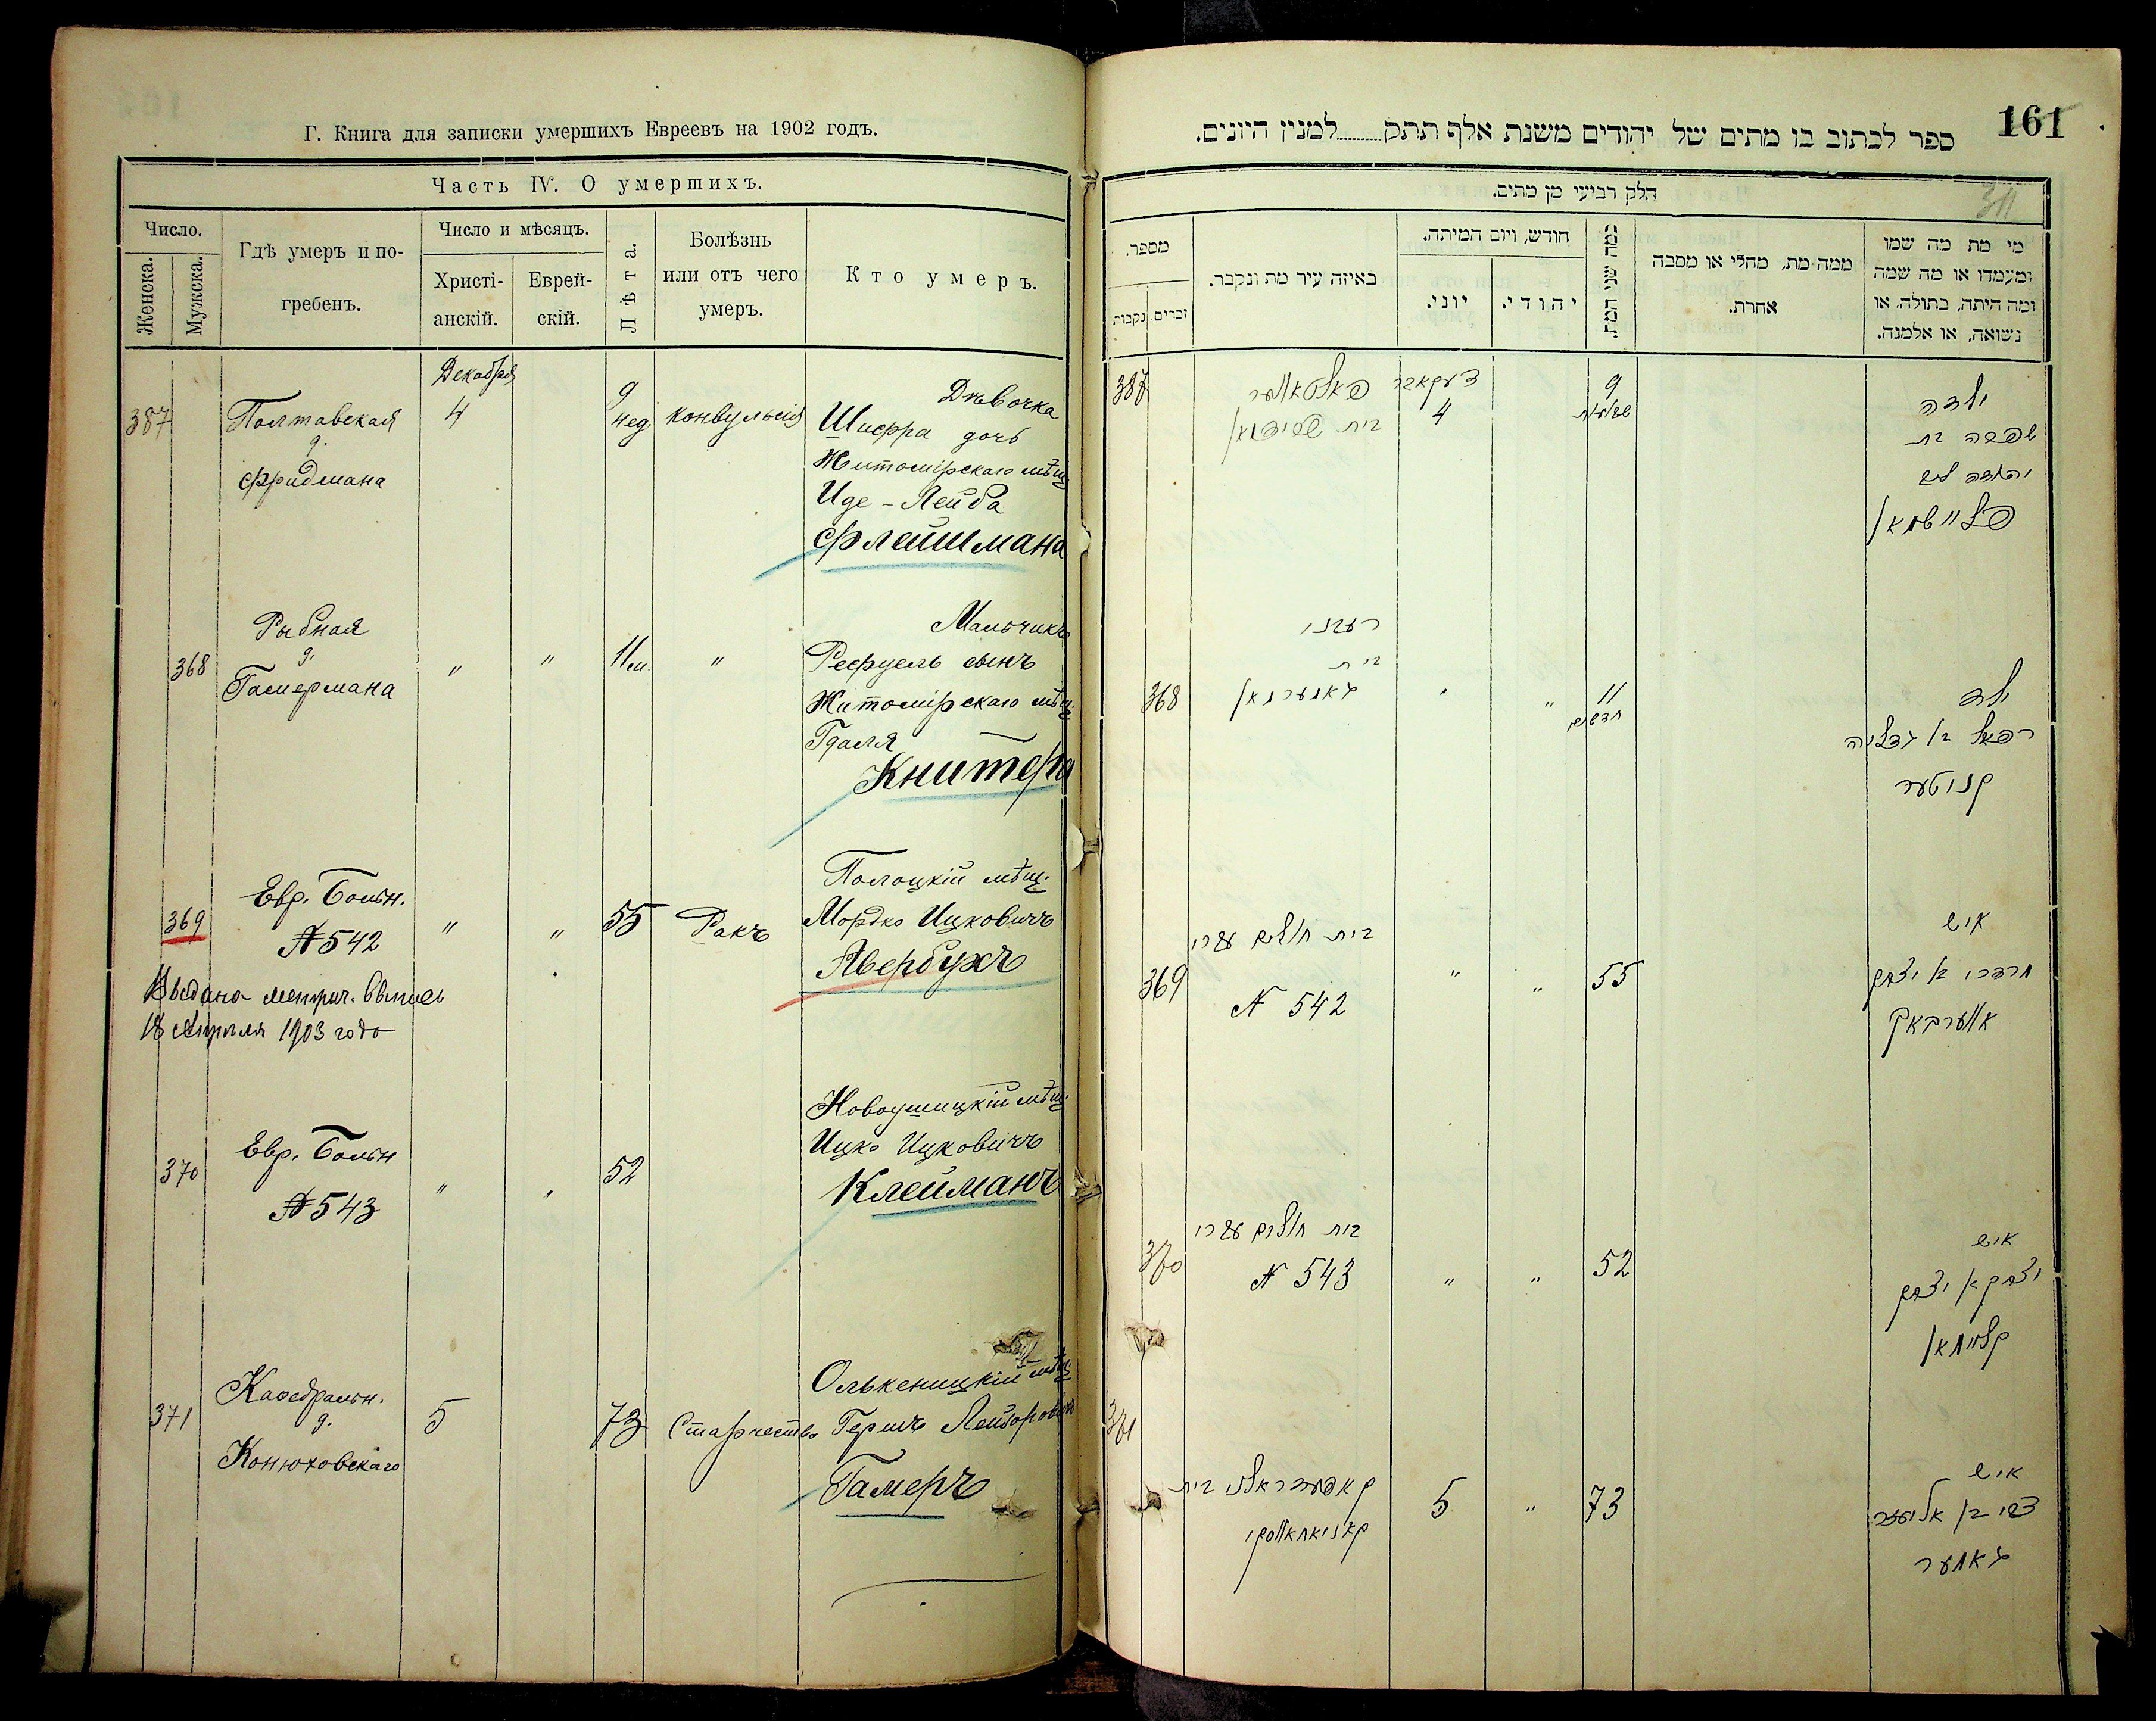 Г. Книга для записки умершихъ Евреевъ на 1902 годъ.
Часть IV. О умершихъ.
Число.
Женска.
Мужска.
Гдѣ умеръ и по-
гребенъ.
Число и мѣсяцъ.
Христі-
анскій.
Еврей-
скій.
Лѣта.
Болѣзнь
или отъ чего
умеръ.
Кто умеръ.
387
Полтавская
д.
Фридмана
Декабря
4
9
нед.
конвульсія
Дѣвочка
Шифра дочь
Житомірскаго мѣщ.
Иде-Лейба
Флейшмана
368
Рыбная
д.
Гамермана
"
"
11 м.
"
Мальчикъ
Рефуель сынъ
Житомірскаго мѣщ.
Гдаля
Книтера
369
Евр. Больн.
№ 542
"
"
55
Ракъ
Полоцкій мѣщ.
Мордко Ицковичъ
Авербухъ
Выдана метрич. выпись
18 Апрѣля 1903 года
370
Евр. Больн
№ 543
"
"
52
Новоушицкій мѣщ.
Ицко Ицковичъ
Клейманъ
371
Кафедральн.
д.
Конюховскаго
5
73
Старчество
Олькеницкій мѣщ
Гершъ Лейзоровичъ
Гамеръ
161
ספר לכתוב בו מתים של יהודים משנת אלף תתק........למנין היונים.
311
חלק רביעי מן מתים.
מספר.
נקבות
זכרים.
באיזה עיר מת ונקבר.
חודש, ויום המיתה.
יוני.
יהודי.
כמה שני המת.
ממה מת, מחלי או מסבה
אחרת.
מי מת מה שמו
ומעמדו או מה שמה
ומה היתה, בתולה, או
נשואה, או אלמנה.
387
בית פרידמאן
דעקאבר
4
9
שבועות
ילדה
שפרה בת
יהודה ליב
פליישמאן
368
ריבני
בית
גאמערמאן
"
"
11
חדשים
ילד
רפאל בן גדליה
קניטער
369
בית חולים עברי
N 542
"
"
55
איש
מרדכי בן יצחק
אווערבאך
370
בית חולים עברי
N 543
"
"
52
איש
יצחק בן יצחק
קליימאן
371
קאפעדראלני בית
קאניאחאווסקי
5
"
73
איש
צבי בן אליעזר
גאמער